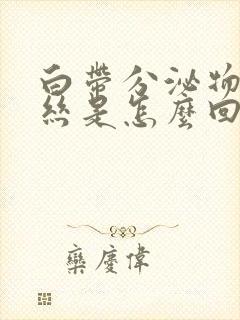 白帶分泌物
絲是怎麼回
欒慶偉